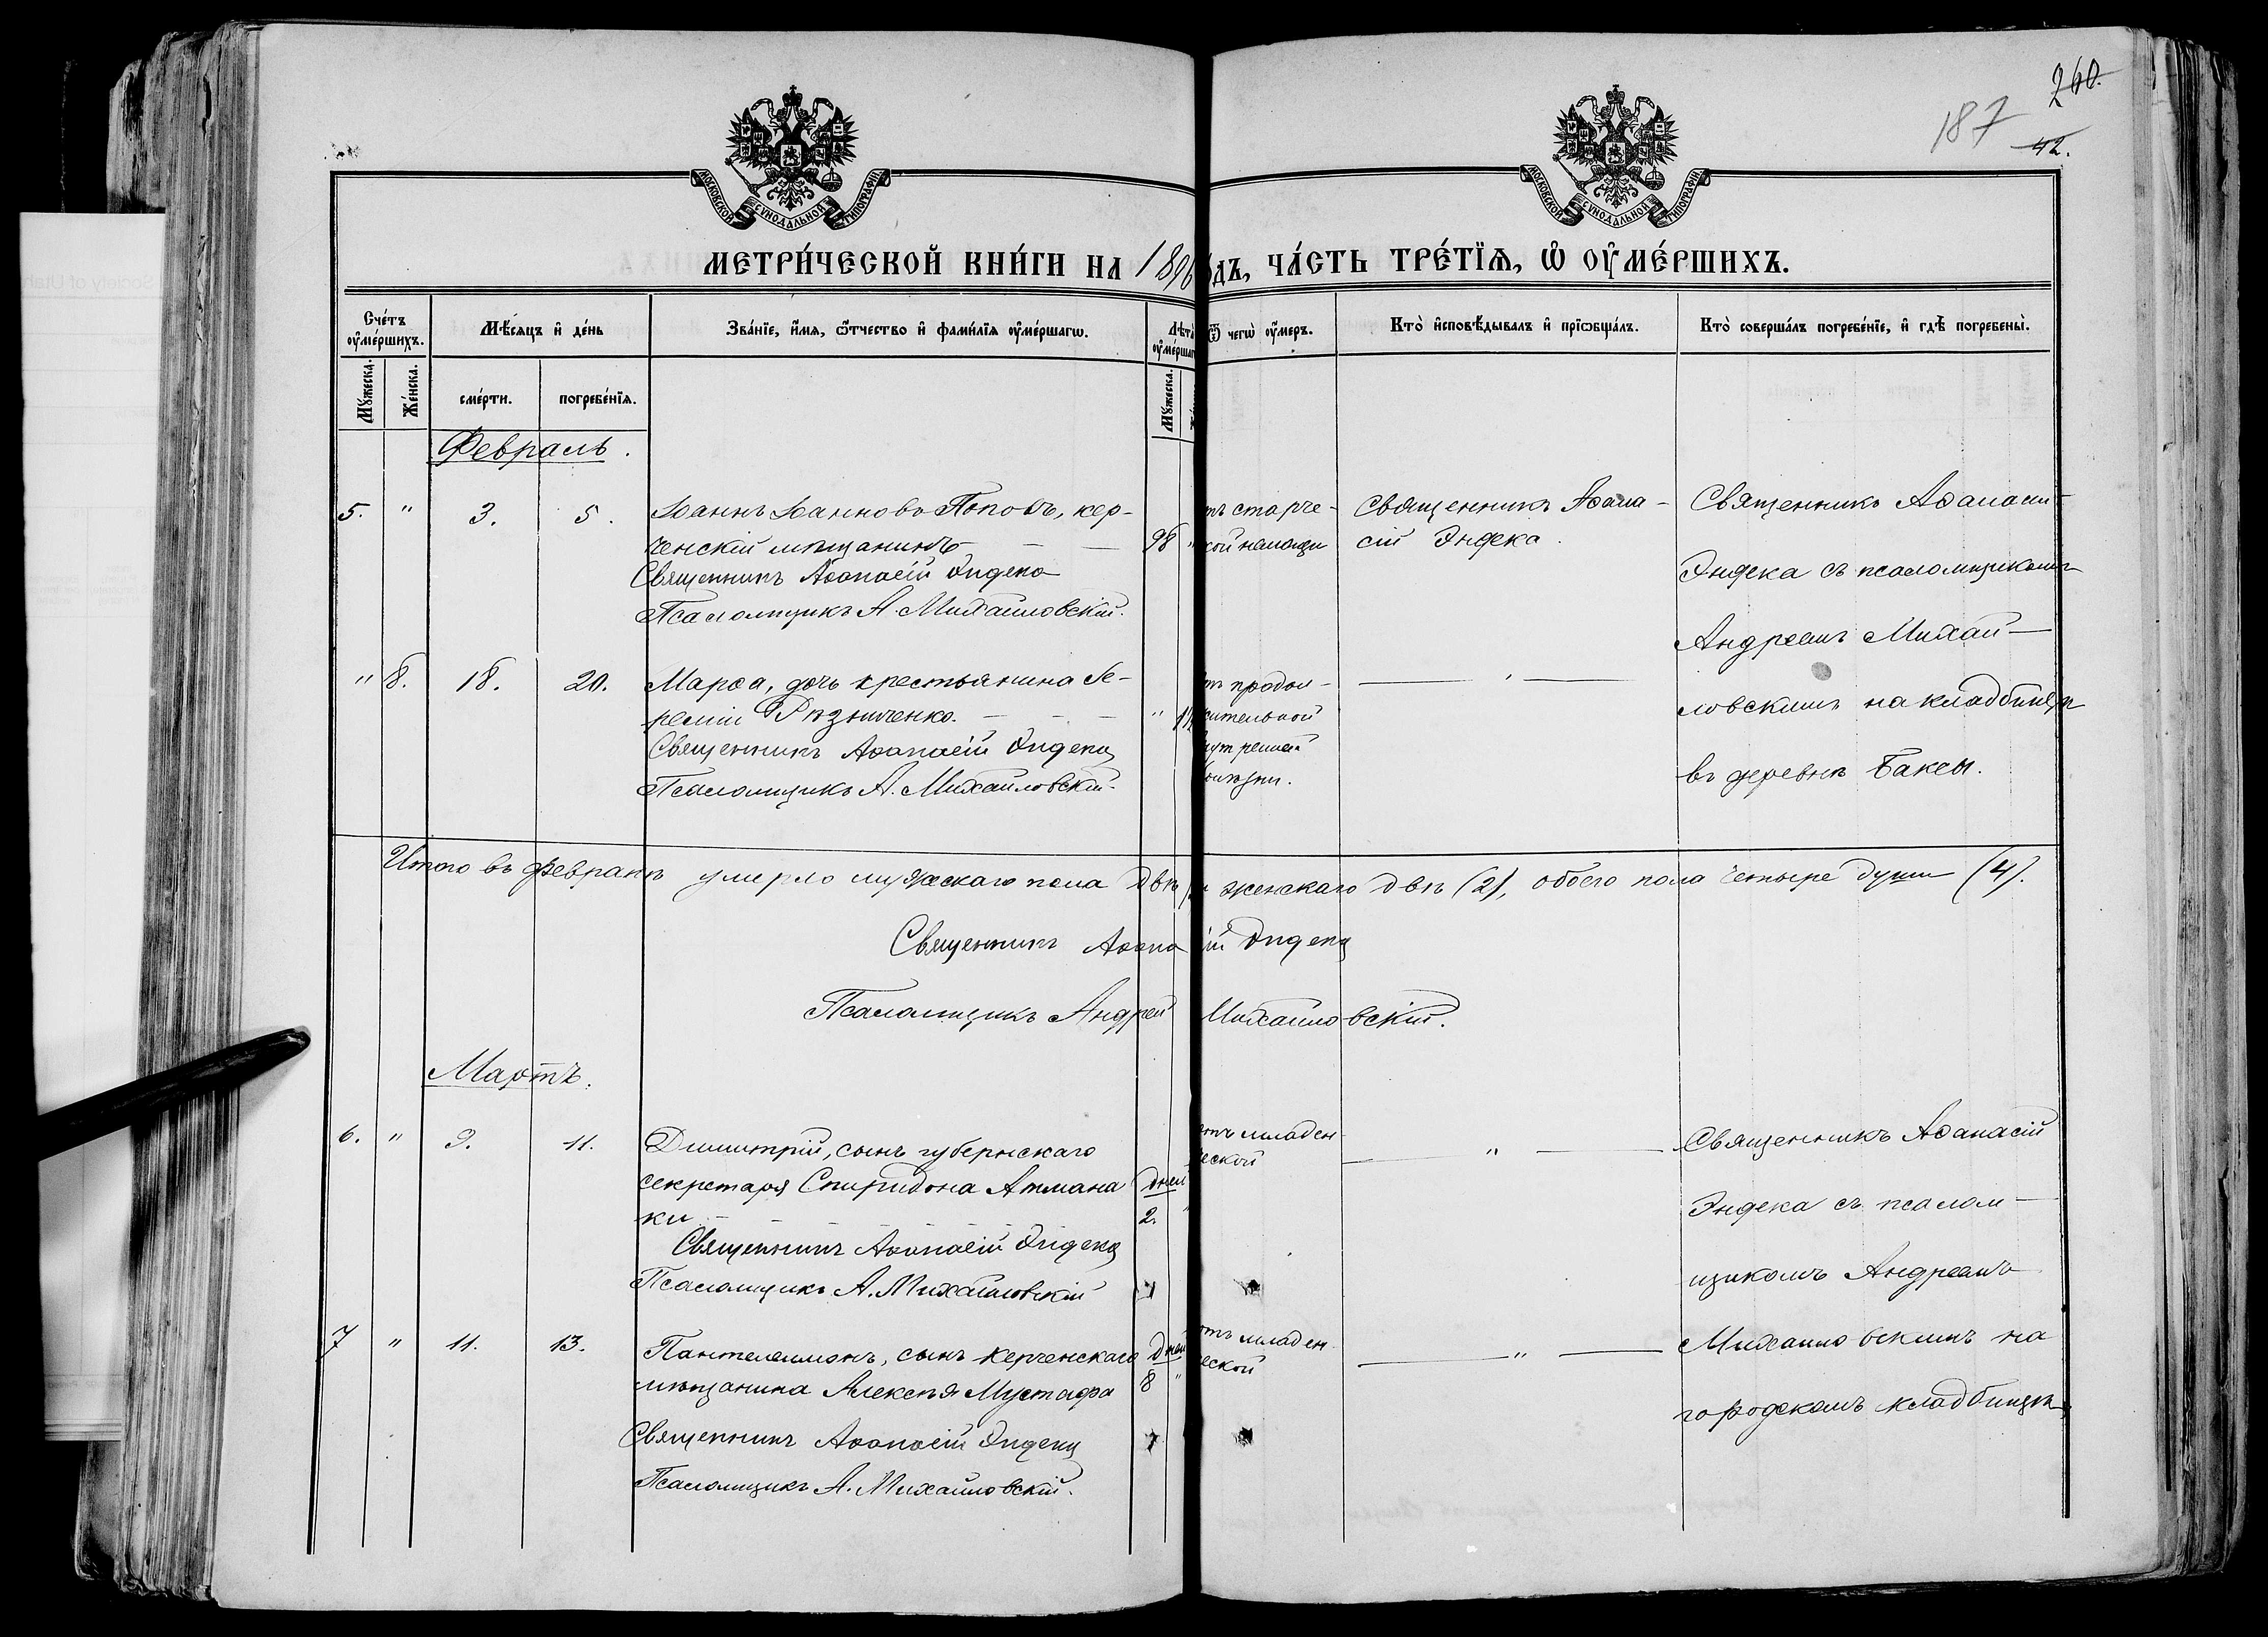 260.
187
42.
МОСКОВСКОЙ СУНОДАЛЬНОЙ ТИПОГРАФІИ
МОСКОВСКОЙ СУНОДАЛЬНОЙ ТИПОГРАФІИ
МЕТРИ́ЧЕСКОЙ КНИ́ГИ НА 1896 ДЪ, ЧА́СТЬ ТРЕ́ТЇѦ, Ѡ҆ ОУ҆МЕ́РШИХЪ.
Сче́тъ оу҆ме́ршихъ.
Мꙋ́жеска.
Же́нска.
Мѣ́сѧцъ и҆ де́нь
сме́рти.
погребе́нїѧ.
Зва́нїе, и҆́мѧ, ѻ҆́тчество и҆ фами́лїѧ оу҆ме́ршагѡ.
Лѣта̀ оу҆ме́ршаг
Мꙋ́жеска.
Ѿ чегѡ̀ оу҆́меръ.
Кто̀ и҆сповѣ́дывалъ и҆ прїѡбща́лъ.
Кто̀ соверша́лъ погребе́нїе, и҆ гдѣ̀ погребены̀.
Февраль.
5. " 3. 5. Іоаннъ Іоанновъ Поповъ, кер-
ченскій мѣщанинъ — — 98 "
Священникъ Аѳанасій Эндека
Псаломщикъ А. Михайловскій.
тъ старче-
кой немощи
Священникъ Аѳана-
сій Эндека.
Священникъ Аѳанасій
Эндека съ псаломщикомъ
Андреемъ Михай-
ловскимъ на кладбищѣ
въ деревнѣ Баксы.
" 8. 18. 20. Марѳа, дочь крестьянина Іе-
реміи Рѣзниченко. — — — "
Священникъ Аѳанасій Эндека
Псаломщикъ А. Михайловскій.
тъ продол-
жительной
нутренней
болѣзни.
— " —
Итого въ февралѣ умерло мужескаго пола двѣ и женскаго двѣ (2), обоего пола четыре души (4).
Священникъ Аѳана ій Эндека
Псаломщикъ Андрей Михайловскій.
Мартъ.
6. " 9. 11. Димитрій, сынъ губернскаго
секретаря Спиридона Атмана дней
ки — — — — — 2.
Священникъ Аѳанасій Эндека
Псаломщикъ А. Михайловскій
отъ младен-
ческой
— " —
Священникъ Аѳанасій
Эндека съ псалом-
щикомъ Андреемъ
Михайловскимъ на
городскомъ кладбищѣ.
7 " 11. 13. Пантелеимонъ, сынъ керченскаго дней
мѣщанина Алексѣя Мустафа 8 "
Священникъ Аѳанасій Эндека
Псаломщикъ А. Михайловскій.
отъ младен-
ческой
— " —